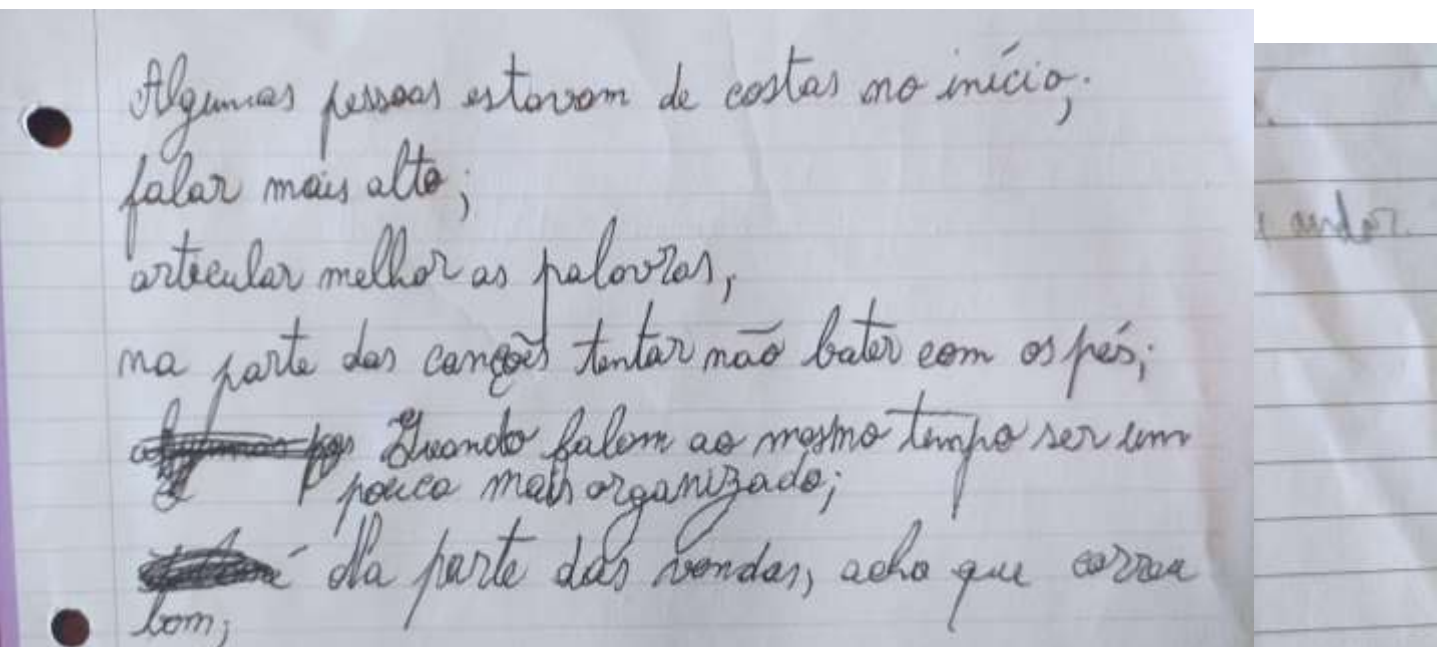 Algumas pessoas estavam de costas no início;
falar mais alto;
articular melhor as palavras;
na parte das canções tentar não bater com os pés;
Quando falam ao mesmo tempo ser um
pouco mais organizado;
Na parte das vendas, acho que correu
bem;
andar.